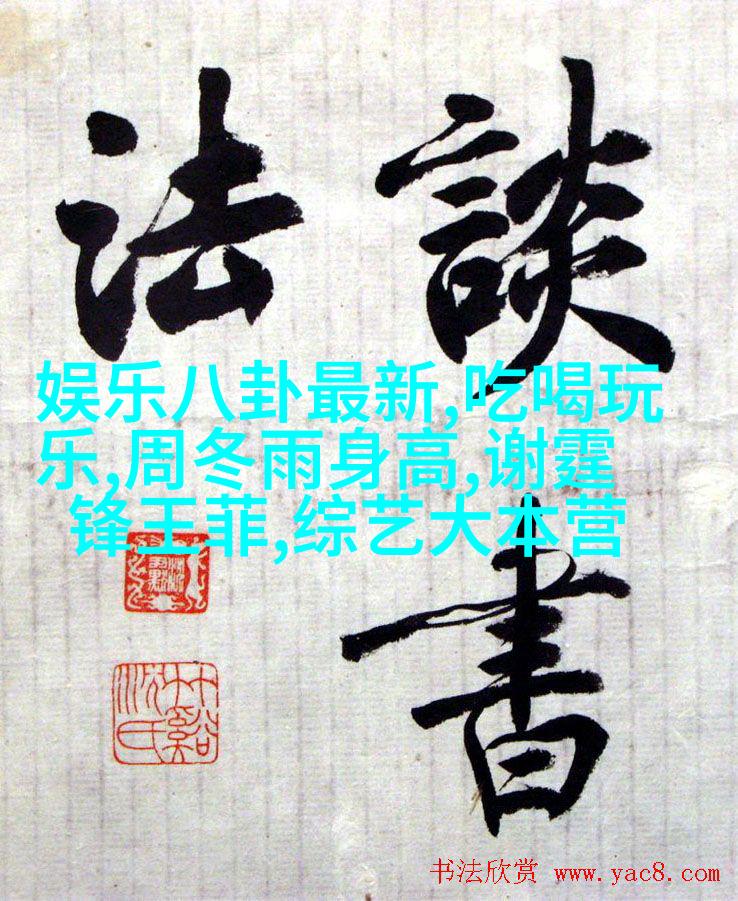 談書
法
娱乐八卦最新,吃喝玩
乐,周冬雨身高,谢霆
锋王菲,综艺大本营
书法欣赏 www.yac8.com